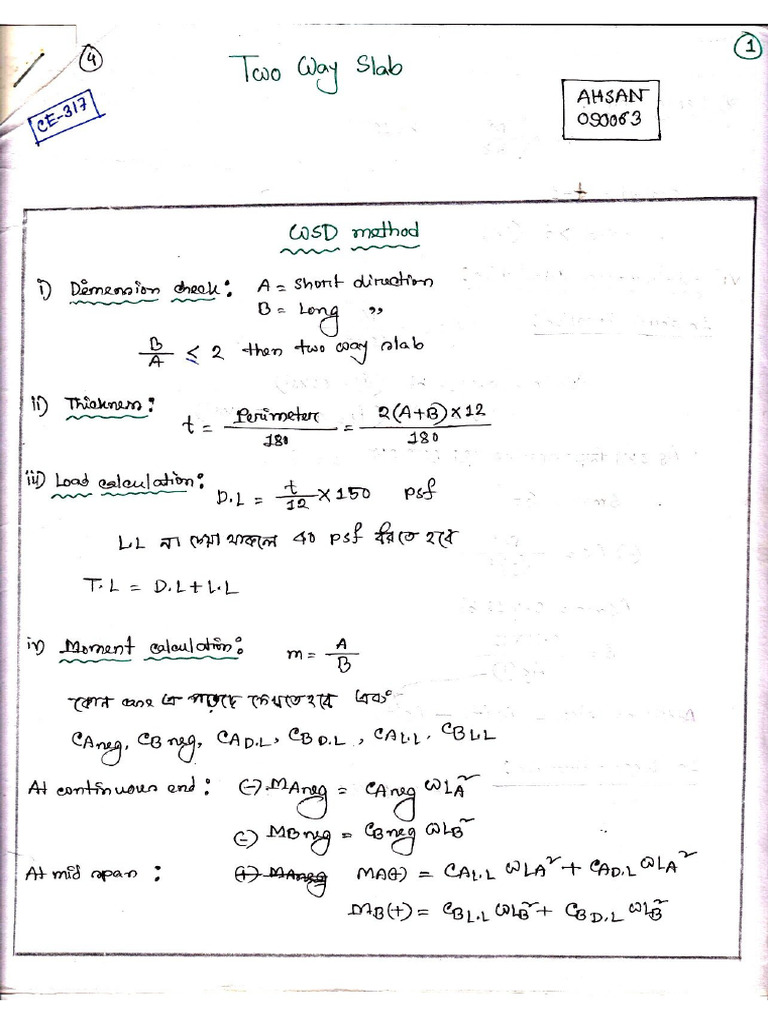 4
Two Way Slab
1
CE-317
AHSAN
090063
WSD method
i) Dimension check: A = short direction
B = Long ,,
B/A ≤ 2 then two way slab
ii) Thickness: t = Perimeter/180 = 2(A+B)×12/180
iii) Load calculation: D.L = t/12 × 150 psf
L.L না দেয়া থাকলে 40 psf ধরতে হবে
T.L = D.L+L.L
iv) Moment calculation: m = A/B
কোন case এ পড়ছে দেখতে হবে এবং
CAneg, CBneg, CAD.L, CBD.L, CAL.L, CBL.L
At continuous end: (-) MAneg = CAneg WLA²
(-) MBneg = CBneg WLB²
At mid span: (+) MAneg MA(+) = CAL.L WLA² + CAD.L WLA²
MB(+) = CBL.L WLB² + CBD.L WLB²